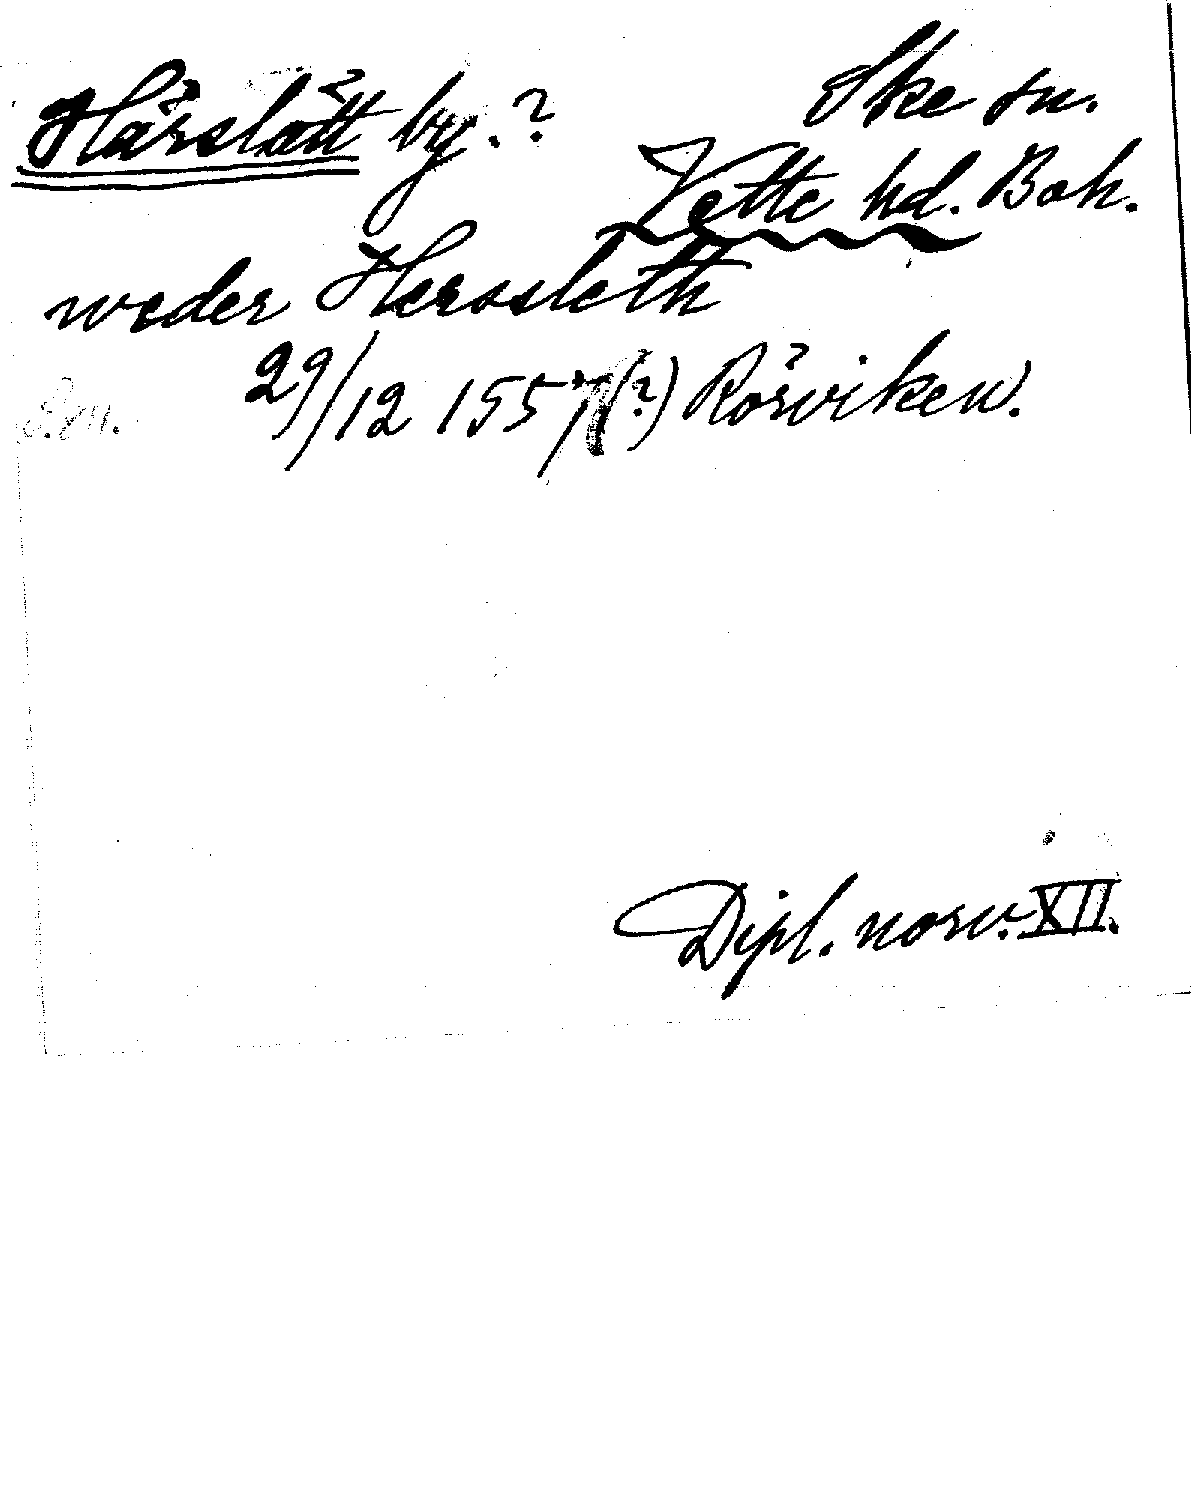 Härslätt by.? Ske sn.
Vette hd. Boh.
weder Herssleth
29/12 1557(?) Rörviken.
S.m.
Dipl. norv. XII.